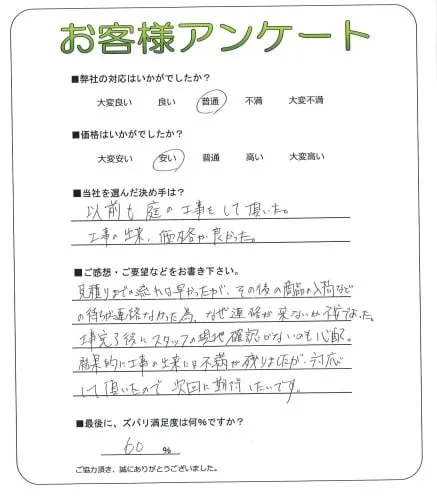 お客様アンケート
■弊社の対応はいかがでしたか？
大変良い 良い 普通 不満 大変不満
■価格はいかがでしたか？
大変安い 安い 普通 高い 大変高い
■当社を選んだ決め手は？
以前も庭の工事をして頂いた。
工事の出来、価格が良かった。
■ご感想・ご要望などをお書き下さい。
見積りまでの流れは早かったが、その後の商品の入荷など
の待ちが連絡なかった為、なぜ連絡が来ないか不安だった。
工事完了後にスタッフの現地確認がないのも心配。
結果的に工事の出来には不満が残りましたが、対応
して頂いたので次回に期待したいです。
■最後に、ズバリ満足度は何%ですか？
60 %
ご協力頂き、誠にありがとうございました。